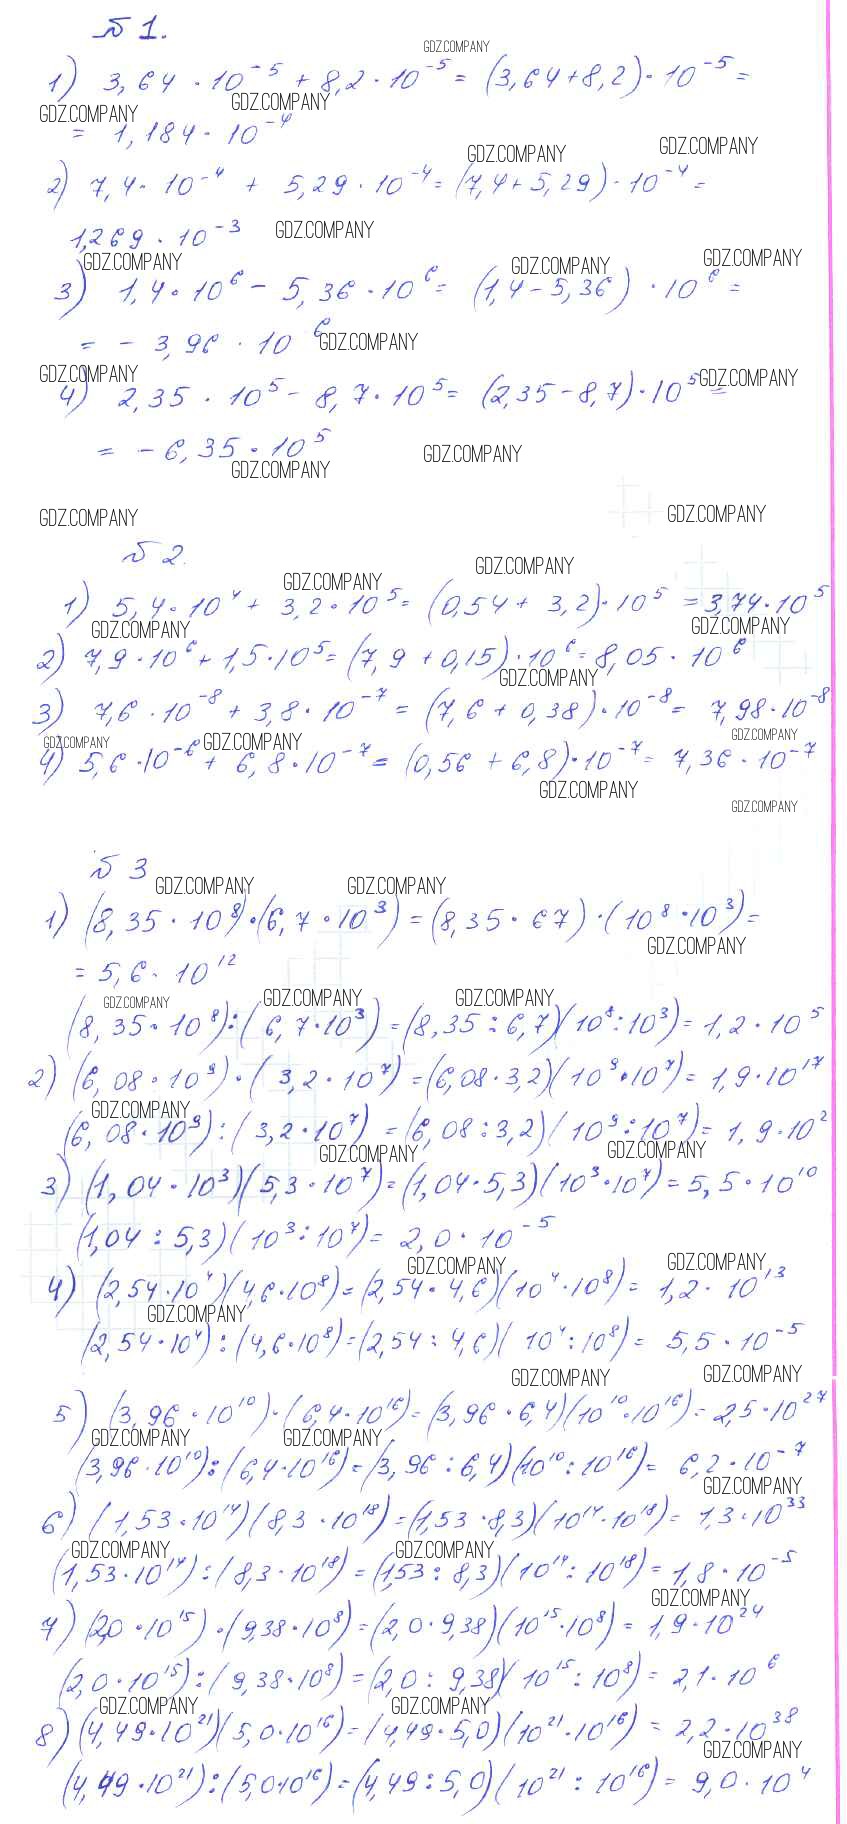 № 1.
1) 3,64 · 10⁻⁵ + 8,2 · 10⁻⁵ = (3,64+8,2) · 10⁻⁵ =
= 1,184 · 10⁻⁴
2) 7,4 · 10⁻⁴ + 5,29 · 10⁻⁴ = (7,4+5,29) · 10⁻⁴ =
1,269 · 10⁻³
3) 1,4 · 10⁶ − 5,36 · 10⁶ = (1,4 − 5,36) · 10⁶ =
= − 3,96 · 10⁶
4) 2,35 · 10⁵ − 8,7 · 10⁵ = (2,35 − 8,7) · 10⁵ =
= − 6,35 · 10⁵
№ 2.
1) 5,4 · 10⁴ + 3,2 · 10⁵ = (0,54 + 3,2) · 10⁵ = 3,74 · 10⁵
2) 7,9 · 10⁶ + 1,5 · 10⁵ = (7,9 + 0,15) · 10⁶ = 8,05 · 10⁶
3) 7,6 · 10⁻⁸ + 3,8 · 10⁻⁷ = (7,6 + 0,38) · 10⁻⁸ = 7,98 · 10⁻⁸
4) 5,6 · 10⁻⁶ + 6,8 · 10⁻⁷ = (0,56 + 6,8) · 10⁻⁷ = 7,36 · 10⁻⁷
№ 3
1) (8,35 · 10⁸) · (6,7 · 10³) = (8,35 · 67) · (10⁸ · 10³) =
= 5,6 · 10¹²
(8,35 · 10⁸) : (6,7 · 10³) = (8,35 : 6,7)(10⁸ : 10³) = 1,2 · 10⁵
2) (6,08 · 10⁹) · (3,2 · 10⁷) = (6,08 · 3,2)(10⁹ · 10⁷) = 1,9 · 10¹⁷
(6,08 · 10⁹) : (3,2 · 10⁷) = (6,08 : 3,2)(10⁹ : 10⁷) = 1,9 · 10²
3) (1,04 · 10³)(5,3 · 10⁷) = (1,04 · 5,3)(10³ · 10⁷) = 5,5 · 10¹⁰
(1,04 : 5,3)(10³ : 10⁷) = 2,0 · 10⁻⁵
4) (2,54 · 10⁴)(4,6 · 10⁸) = (2,54 · 4,6)(10⁴ · 10⁸) = 1,2 · 10¹³
(2,54 · 10⁴) : (4,6 · 10⁸) = (2,54 : 4,6)(10⁴ : 10⁸) = 5,5 · 10⁻⁵
5) (3,96 · 10¹⁰) · (6,4 · 10¹⁶) = (3,96 · 6,4)(10¹⁰ · 10¹⁶) = 2,5 · 10²⁷
(3,96 · 10¹⁰) : (6,4 · 10¹⁶) = (3,96 : 6,4)(10¹⁰ : 10¹⁶) = 6,2 · 10⁻⁷
6) (1,53 · 10¹⁴)(8,3 · 10¹⁸) = (1,53 · 8,3)(10¹⁴ · 10¹⁸) = 1,3 · 10³³
(1,53 · 10¹⁴) : (8,3 · 10¹⁸) = (1,53 : 8,3)(10¹⁴ : 10¹⁸) = 1,8 · 10⁻⁵
7) (2,0 · 10¹⁵) · (9,38 · 10⁸) = (2,0 · 9,38)(10¹⁵ · 10⁸) = 1,9 · 10²⁴
(2,0 · 10¹⁵) : (9,38 · 10⁸) = (2,0 : 9,38)(10¹⁵ : 10⁸) = 2,1 · 10⁶
8) (4,49 · 10²¹)(5,0 · 10¹⁶) = (4,49 · 5,0)(10²¹ · 10¹⁶) = 2,2 · 10³⁸
(4,49 · 10²¹) : (5,0 · 10¹⁶) = (4,49 : 5,0)(10²¹ : 10¹⁶) = 9,0 · 10⁴